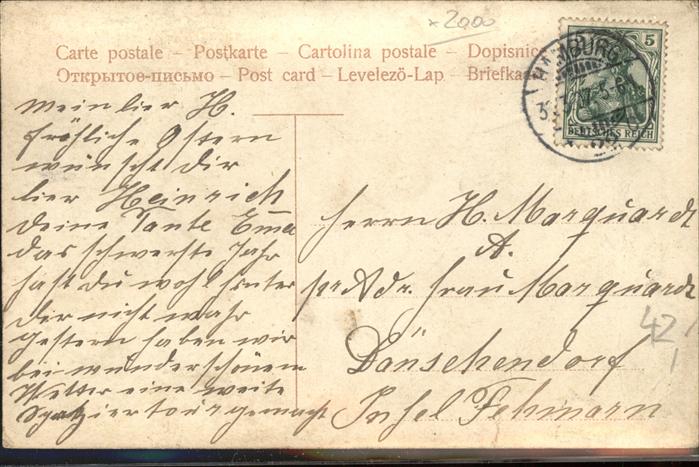 x 20,00
Carte postale – Postkarte – Cartolina postale – Dopisnice
Открытое-письмо – Post card – Levelező-Lap – Briefka
HAMBURG
5
DEUTSCHES REICH
Mein lier H.
fröhliche Ostern
wünscht dir
lier Heinrich
deine Tante Emma
das schwerste Jahr
hast du wohl hinter
dir nicht wahr
gestern haben wir
bei wunderschönem
Wetter eine weite
Spatziertour gemacht
Herrn H. Marquardt
A.
pr Adr. Frau Marquardt
Dänschendorf
Insel Fehmarn
42